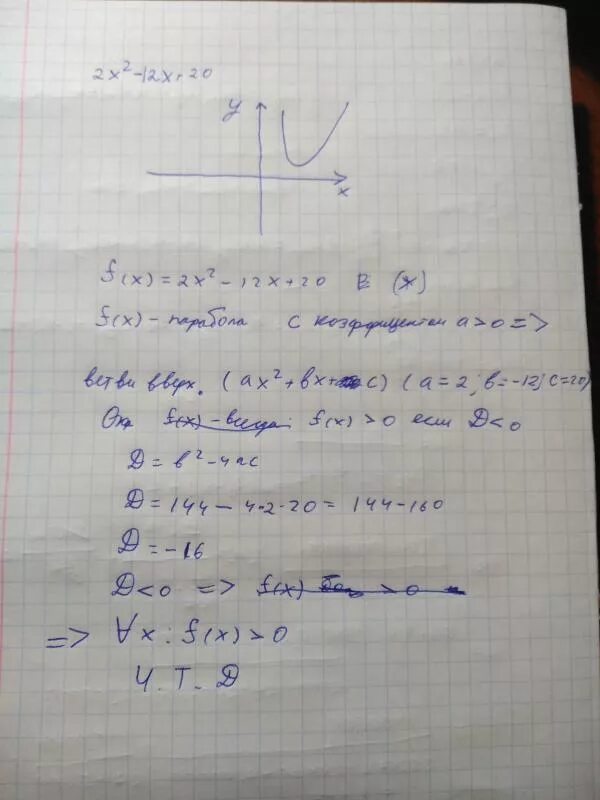 2x²-12x+20
y
x
f(x) = 2x² - 12x + 20 в (x)
f(x) - парабола с коэффициентом a > 0 =>
ветви вверх. (ax² + bx + c) (a = 2; b = -12; c = 20)
Она f(x) > 0 если D < 0
D = b² - 4ac
D = 144 - 4·2·20 = 144 - 160
D = -16
D < 0 => f(x) > 0
=> ∀x : f(x) > 0
Ч. Т. Д